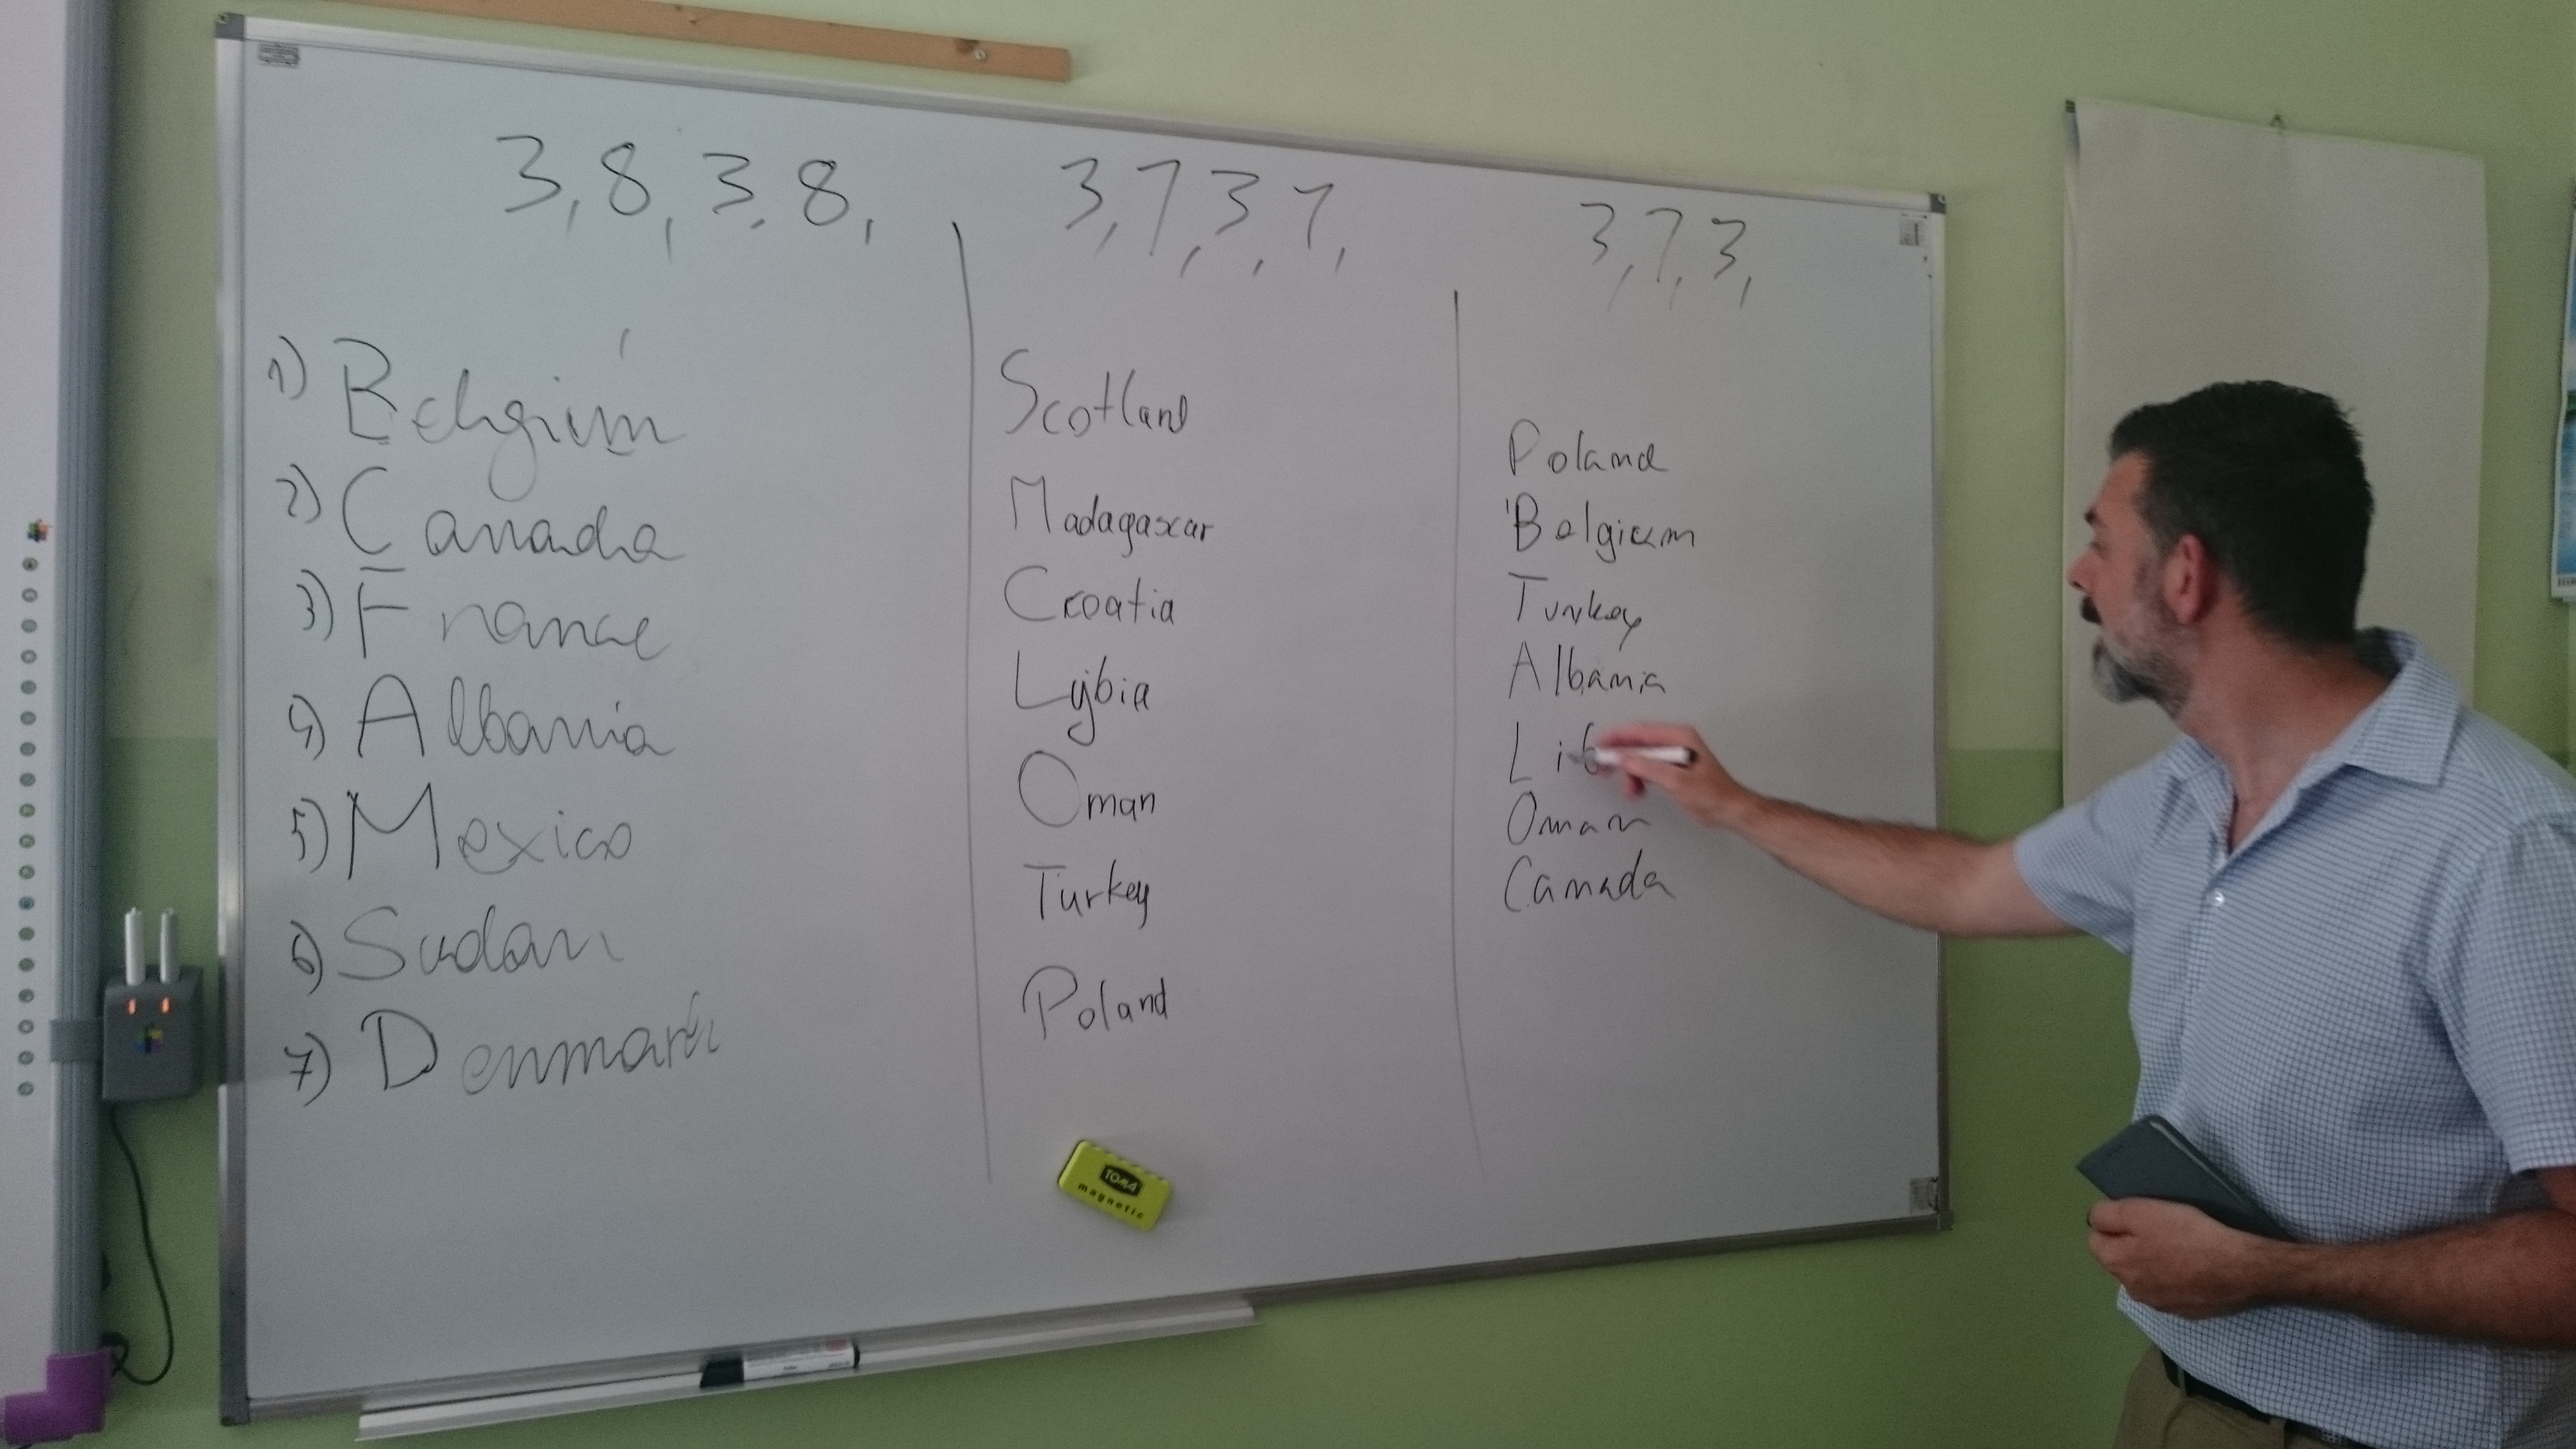 3,8,3,8,
1) Belgium
2) Canada
3) France
4) Albania
5) Mexico
6) Sudan
7) Denmark
3,7,3,7,
Scotland
Madagascar
Croatia
Lybia
Oman
Turkey
Poland
3,7,3,
Poland
Belgium
Turkey
Albania
Lib
Oman
Canada
TOMA
magnetic